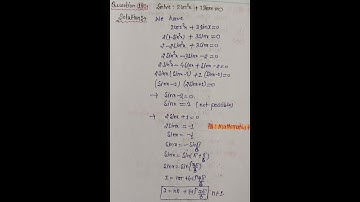 Question
Solve: 2cos²x + 3sinx=0
Solution:→ we have
2cos²x + 3sinx=0
2(1-sin²x) + 3sinx=0
2-2sin²x + 3sinx=0
2sin²x-3sinx-2=0
2sin²x-4sinx+sinx-2=0
2sinx(sinx-2)+1(sinx-2)=0
(sinx-2)(2sinx+1)=0
→ sinx-2=0
sinx=2 (not possible)
→ 2sinx+1=0
2sinx=-1
sinx=-1/2
sinx=-sin π/6
sinx=sin(π+π/6)
sinx=sin(7π/6)